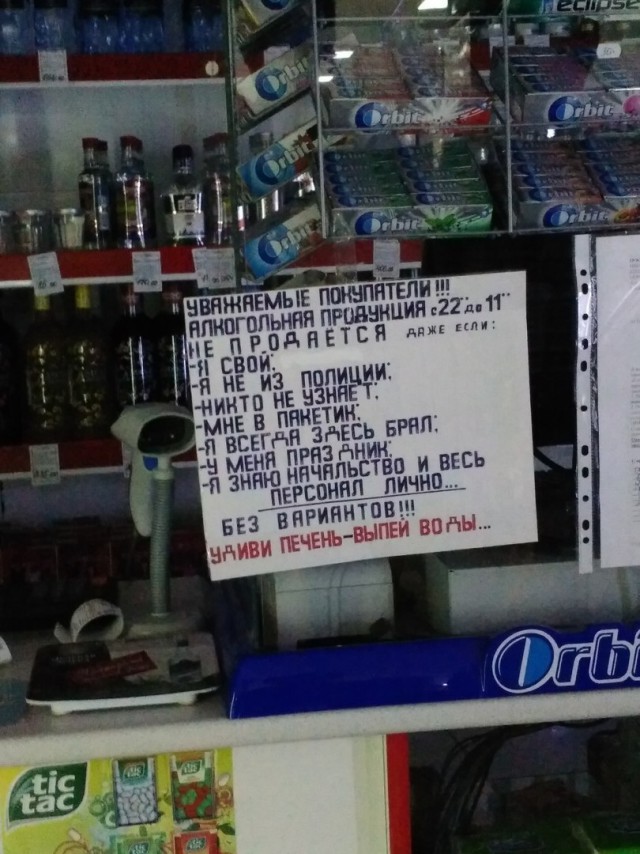 eclipse
Orbit
Orbit
Orbit
Orbit
Orbit
Orbit
Orbit
УВАЖАЕМЫЕ ПОКУПАТЕЛИ!!!
АЛКОГОЛЬНАЯ ПРОДУКЦИЯ с 22°° до 11°°
НЕ ПРОДАЁТСЯ ДАЖЕ ЕСЛИ:
-Я СВОЙ;
-Я НЕ ИЗ ПОЛИЦИИ;
-НИКТО НЕ УЗНАЕТ;
-МНЕ В ПАКЕТИК;
-Я ВСЕГДА ЗДЕСЬ БРАЛ;
-У МЕНЯ ПРАЗДНИК;
-Я ЗНАЮ НАЧАЛЬСТВО И ВЕСЬ
ПЕРСОНАЛ ЛИЧНО...
БЕЗ ВАРИАНТОВ!!!
УДИВИ ПЕЧЕНЬ-ВЫПЕЙ ВОДЫ...
Orbi
tic
tac